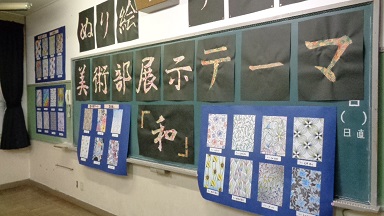 ぬり絵
美術部展示テーマ
「和」
( )
日直